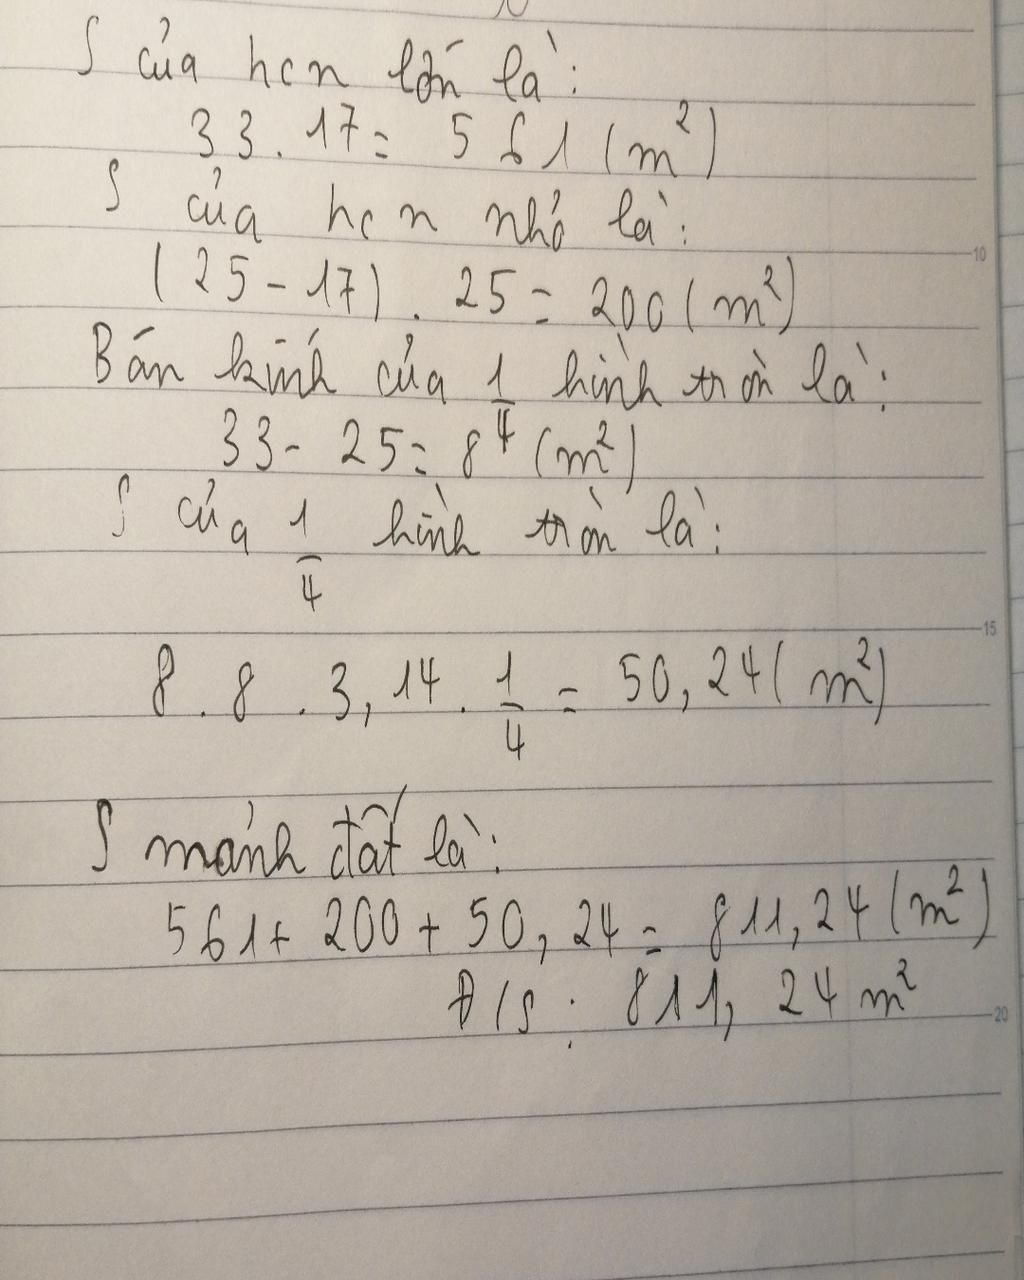 S của hcn lớn là:
33.17= 561 (m²)
S của hcn nhỏ là:
10
(25-17).25= 200 (m²)
Bán kính của 1/4 hình tròn là:
33-25= 8 (m²)
S của 1/4 hình tròn là:
15
8.8.3,14.1/4= 50,24 (m²)
S mảnh đất là:
561+200+50,24= 811,24 (m²)
Đ/S: 811,24 m²
20